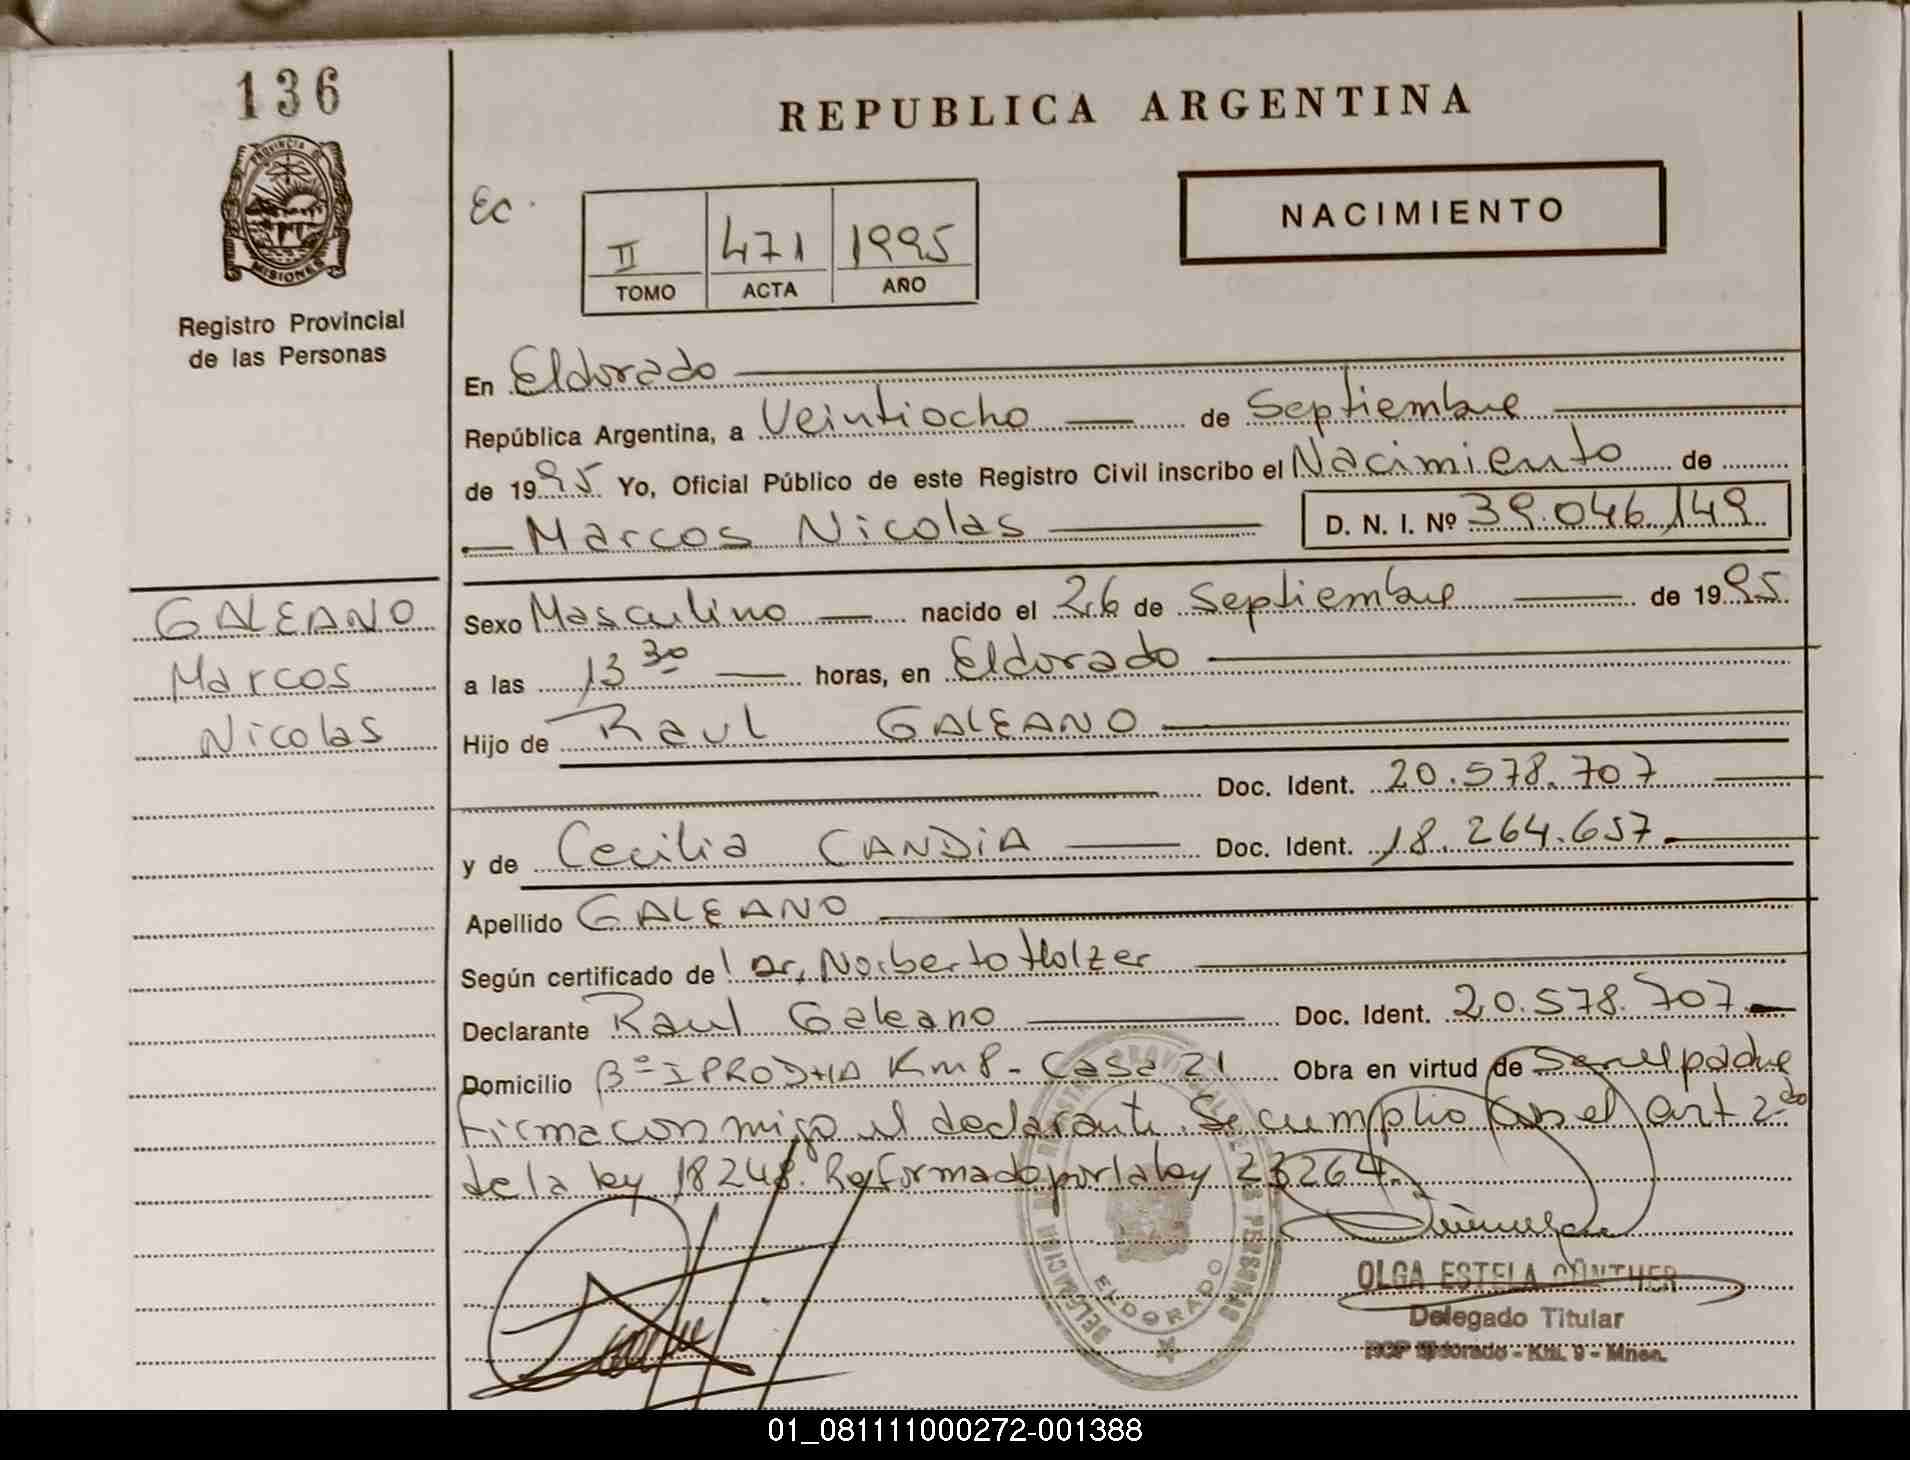 136
PROVINCIA DE
MISIONES
Registro Provincial
de las Personas
REPUBLICA ARGENTINA
NACIMIENTO
Ec.
II 471 1995
TOMO ACTA AÑO
En Eldorado
República Argentina, a Veintiocho de Septiembre
de 1995 Yo, Oficial Público de este Registro Civil inscribo el Nacimiento de
Marcos Nicolas D. N. I. Nº 39.046.149
GALEANO
Marcos
Nicolas
Sexo Masculino nacido el 26 de Septiembre de 1995
a las 13 30 horas, en Eldorado
Hijo de Raul GALEANO
Doc. Ident. 20.578.707
y de Cecilia CANDIA Doc. Ident. 18.264.657
Apellido GALEANO
Según certificado de Dr. Norberto Holzer
Declarante Raul Galeano Doc. Ident. 20.578.707
Domicilio Bº IPRODHA Km 8 - Casa 21 Obra en virtud de Ser el padre
Firma con migo el declarante. Se cumplio con el art 2do
de la ley 18248. Reformado por la ley 23264.
DELEGACION REGISTRO PROVINCIAL DE LAS PERSONAS
ELDORADO
OLGA ESTELA GÜNTHER
Delegado Titular
RCP Eldorado - Km. 9 - Mnes.
01_081111000272-001388